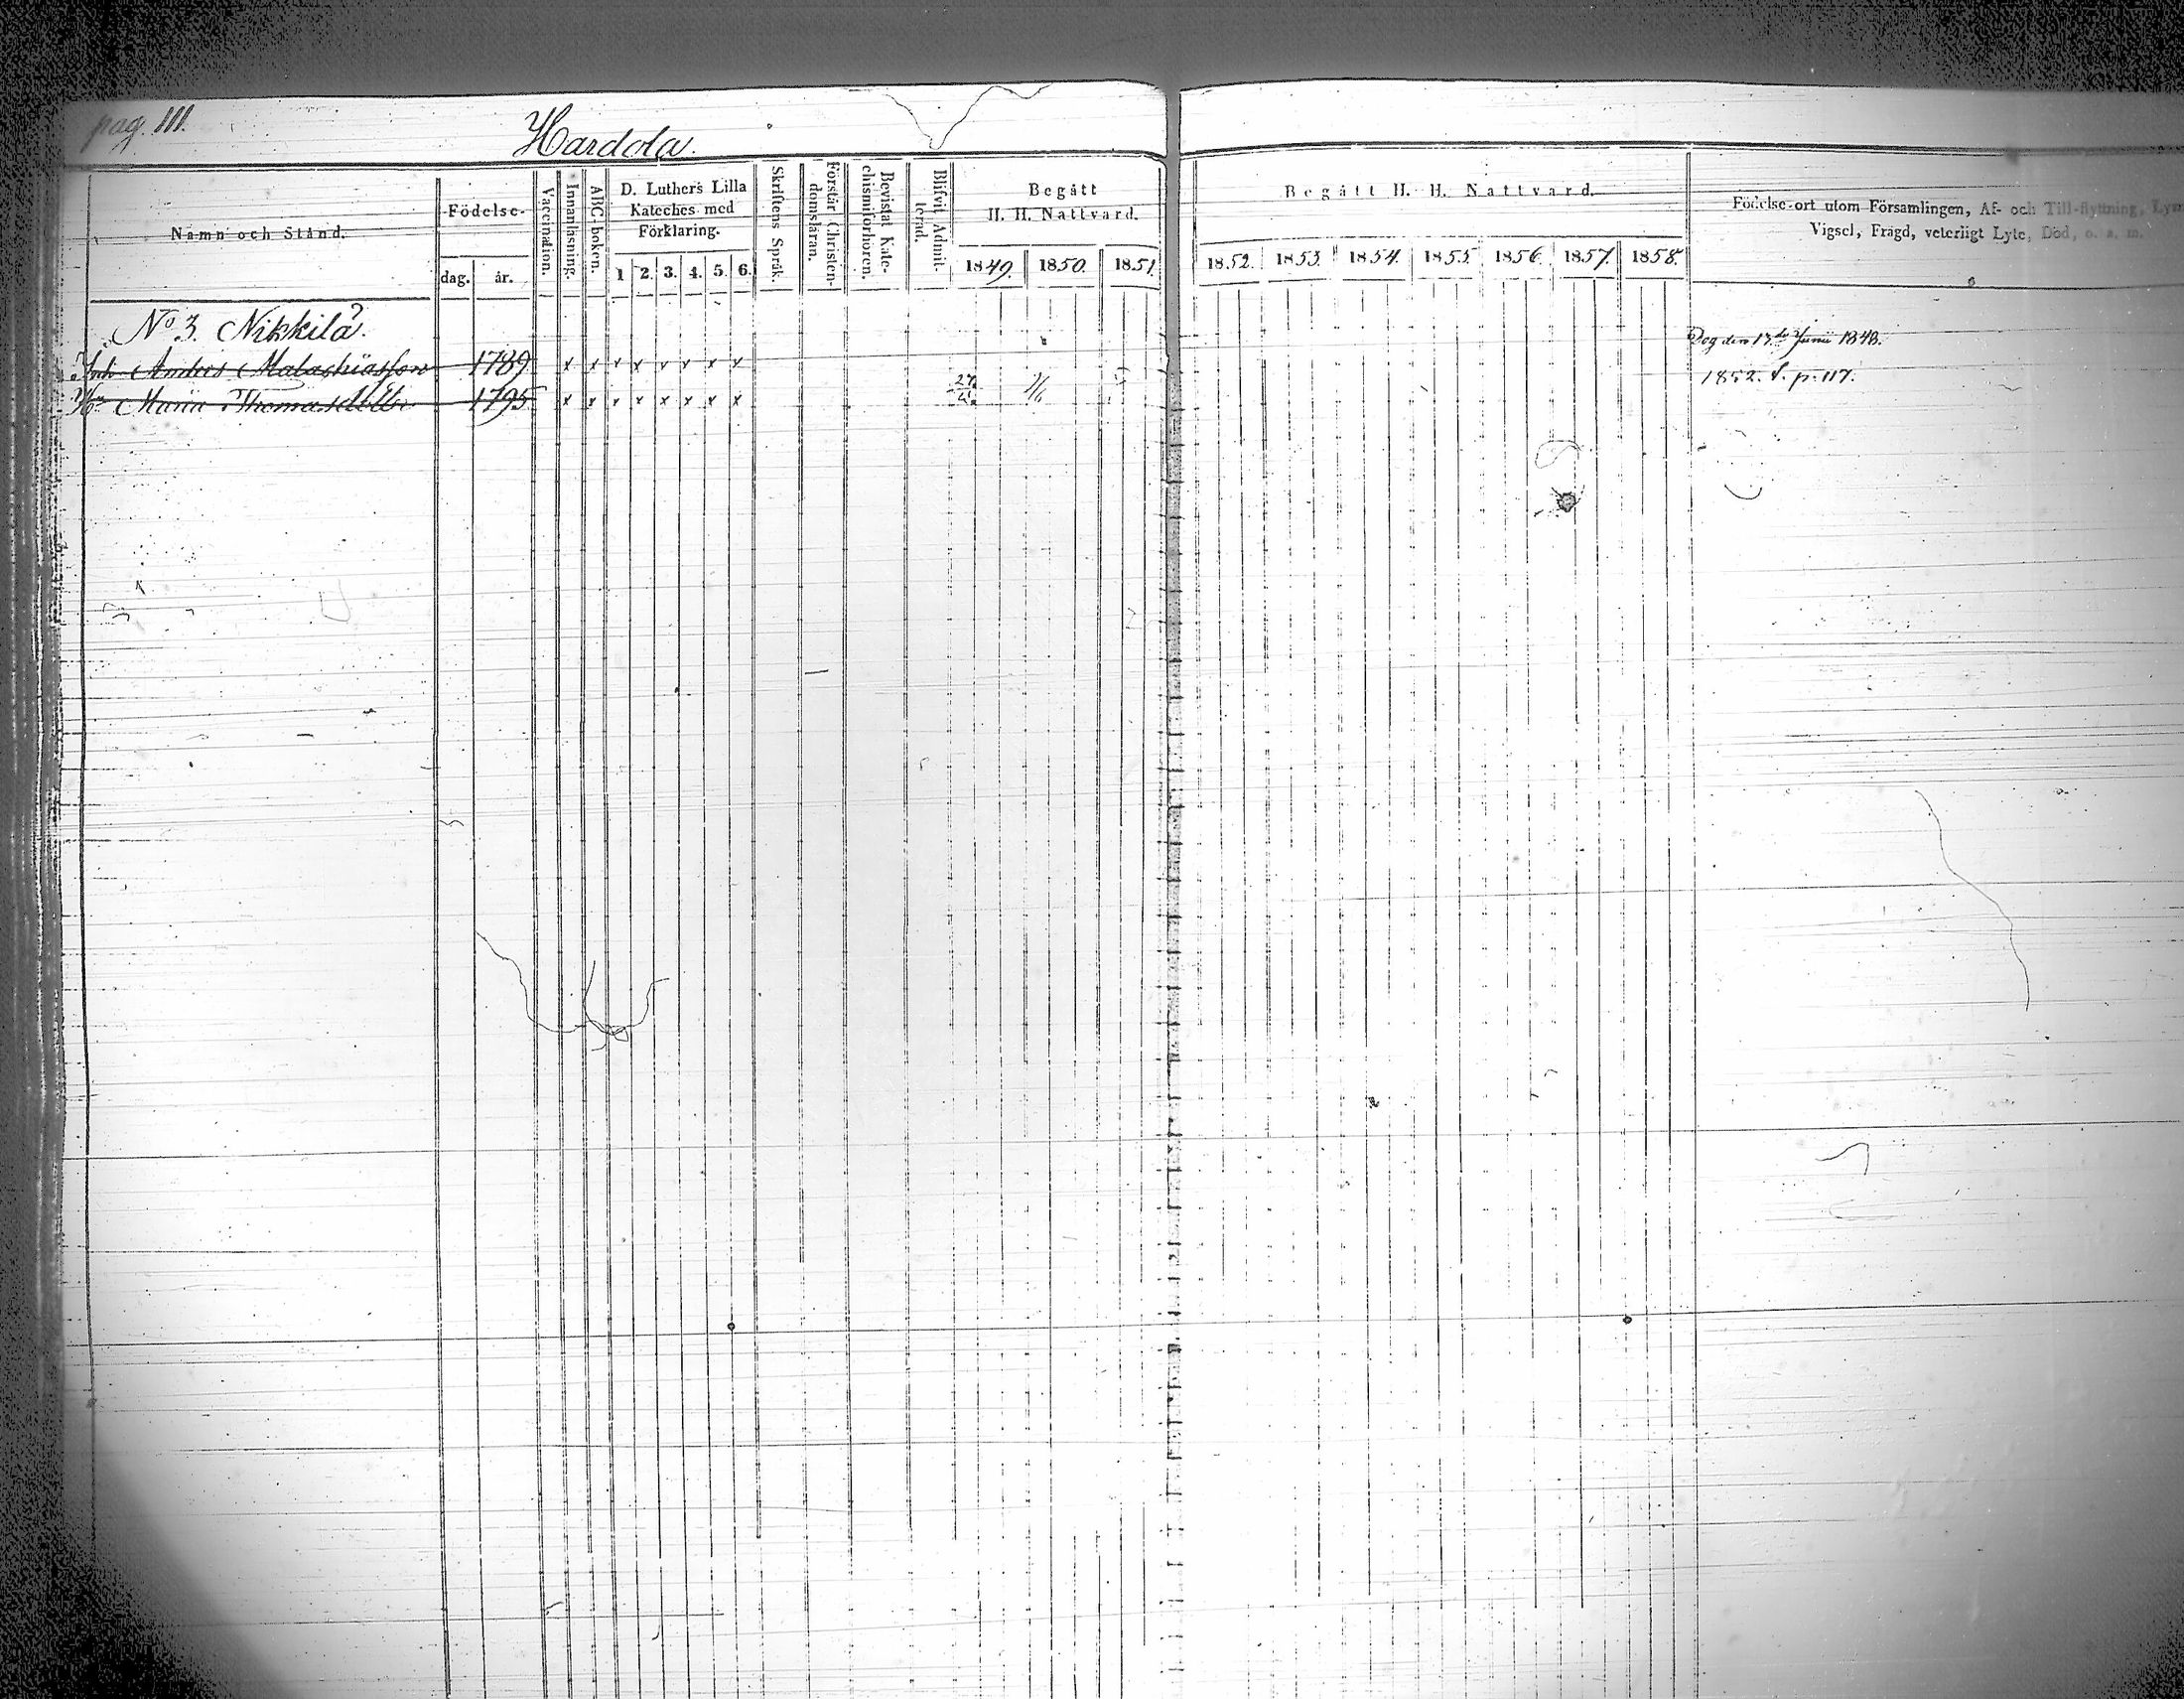 pag. 111.
Hardola.
Namn och Stånd.
Födelse-
dag.
år.
Vaccination.
Innanläsning.
ABC-boken.
D. Luthers Lilla
Kateches med
Förklaring.
1 2. 3. 4. 5. 6.
Skriftens Språk.
Förstår Christen-
domsläran.
Bevistat Kate-
chismiförhören.
Blifvit Admit-
terad.
Begått
H. H. Nattvard.
1849. 1850. 1851.
Begått H. H. Nattvard.
1852. 1853. 1854. 1855. 1856. 1857. 1858.
Födelse-ort utom Församlingen, Af- och Till-flyttning,
Vigsel, Frägd, veterligt Lyte, Död, o. s. m.
No 3. Nikkilä.
Anders Malachiasson 1789 x x x x x x x x Dog den 17de Junii 1848.
Maria Thomasdotter 1795 x x x x x x x x 1852. S. p. 117.